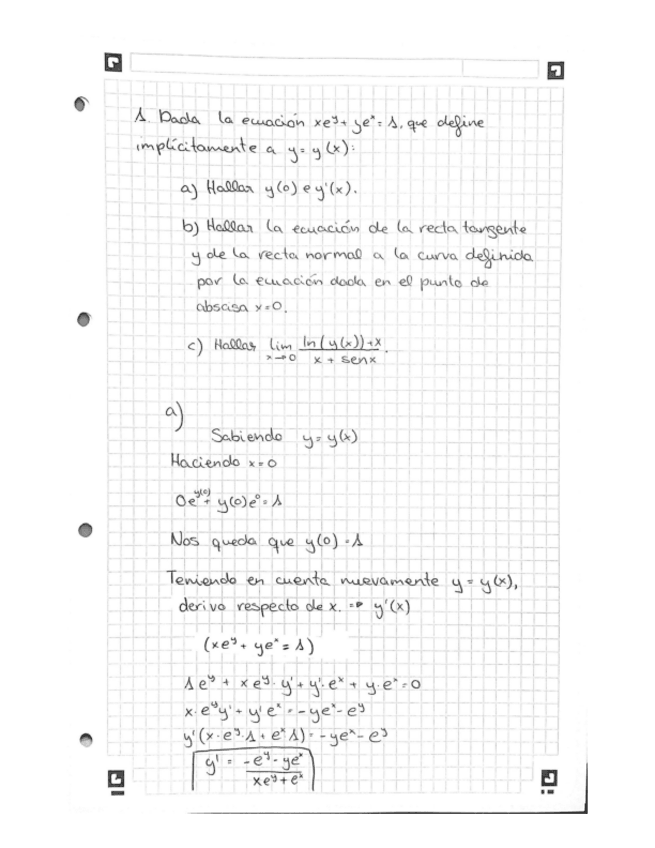 1. Dada la ecuación xe^y + ye^x = 1, que define
implícitamente a y = y(x):
a) Hallar y(0) e y'(x).
b) Hallar la ecuación de la recta tangente
y de la recta normal a la curva definida
por la ecuación dada en el punto de
abscisa x=0.
c) Hallar lim x→0 (ln(y(x))+x)/(x + senx).
a)
Sabiendo y = y(x)
Haciendo x = 0
0e^y(0) + y(0)e^0 = 1
Nos queda que y(0) = 1
Teniendo en cuenta nuevamente y = y(x),
derivo respecto de x. => y'(x)
(xe^y + ye^x = 1)
1e^y + xe^y · y' + y'· e^x + y·e^x = 0
x·e^y y' + y' e^x = -ye^x - e^y
y'(x·e^y·1 + e^x 1) = -ye^x - e^y
y' = (-e^y - ye^x)/(xe^y + e^x)